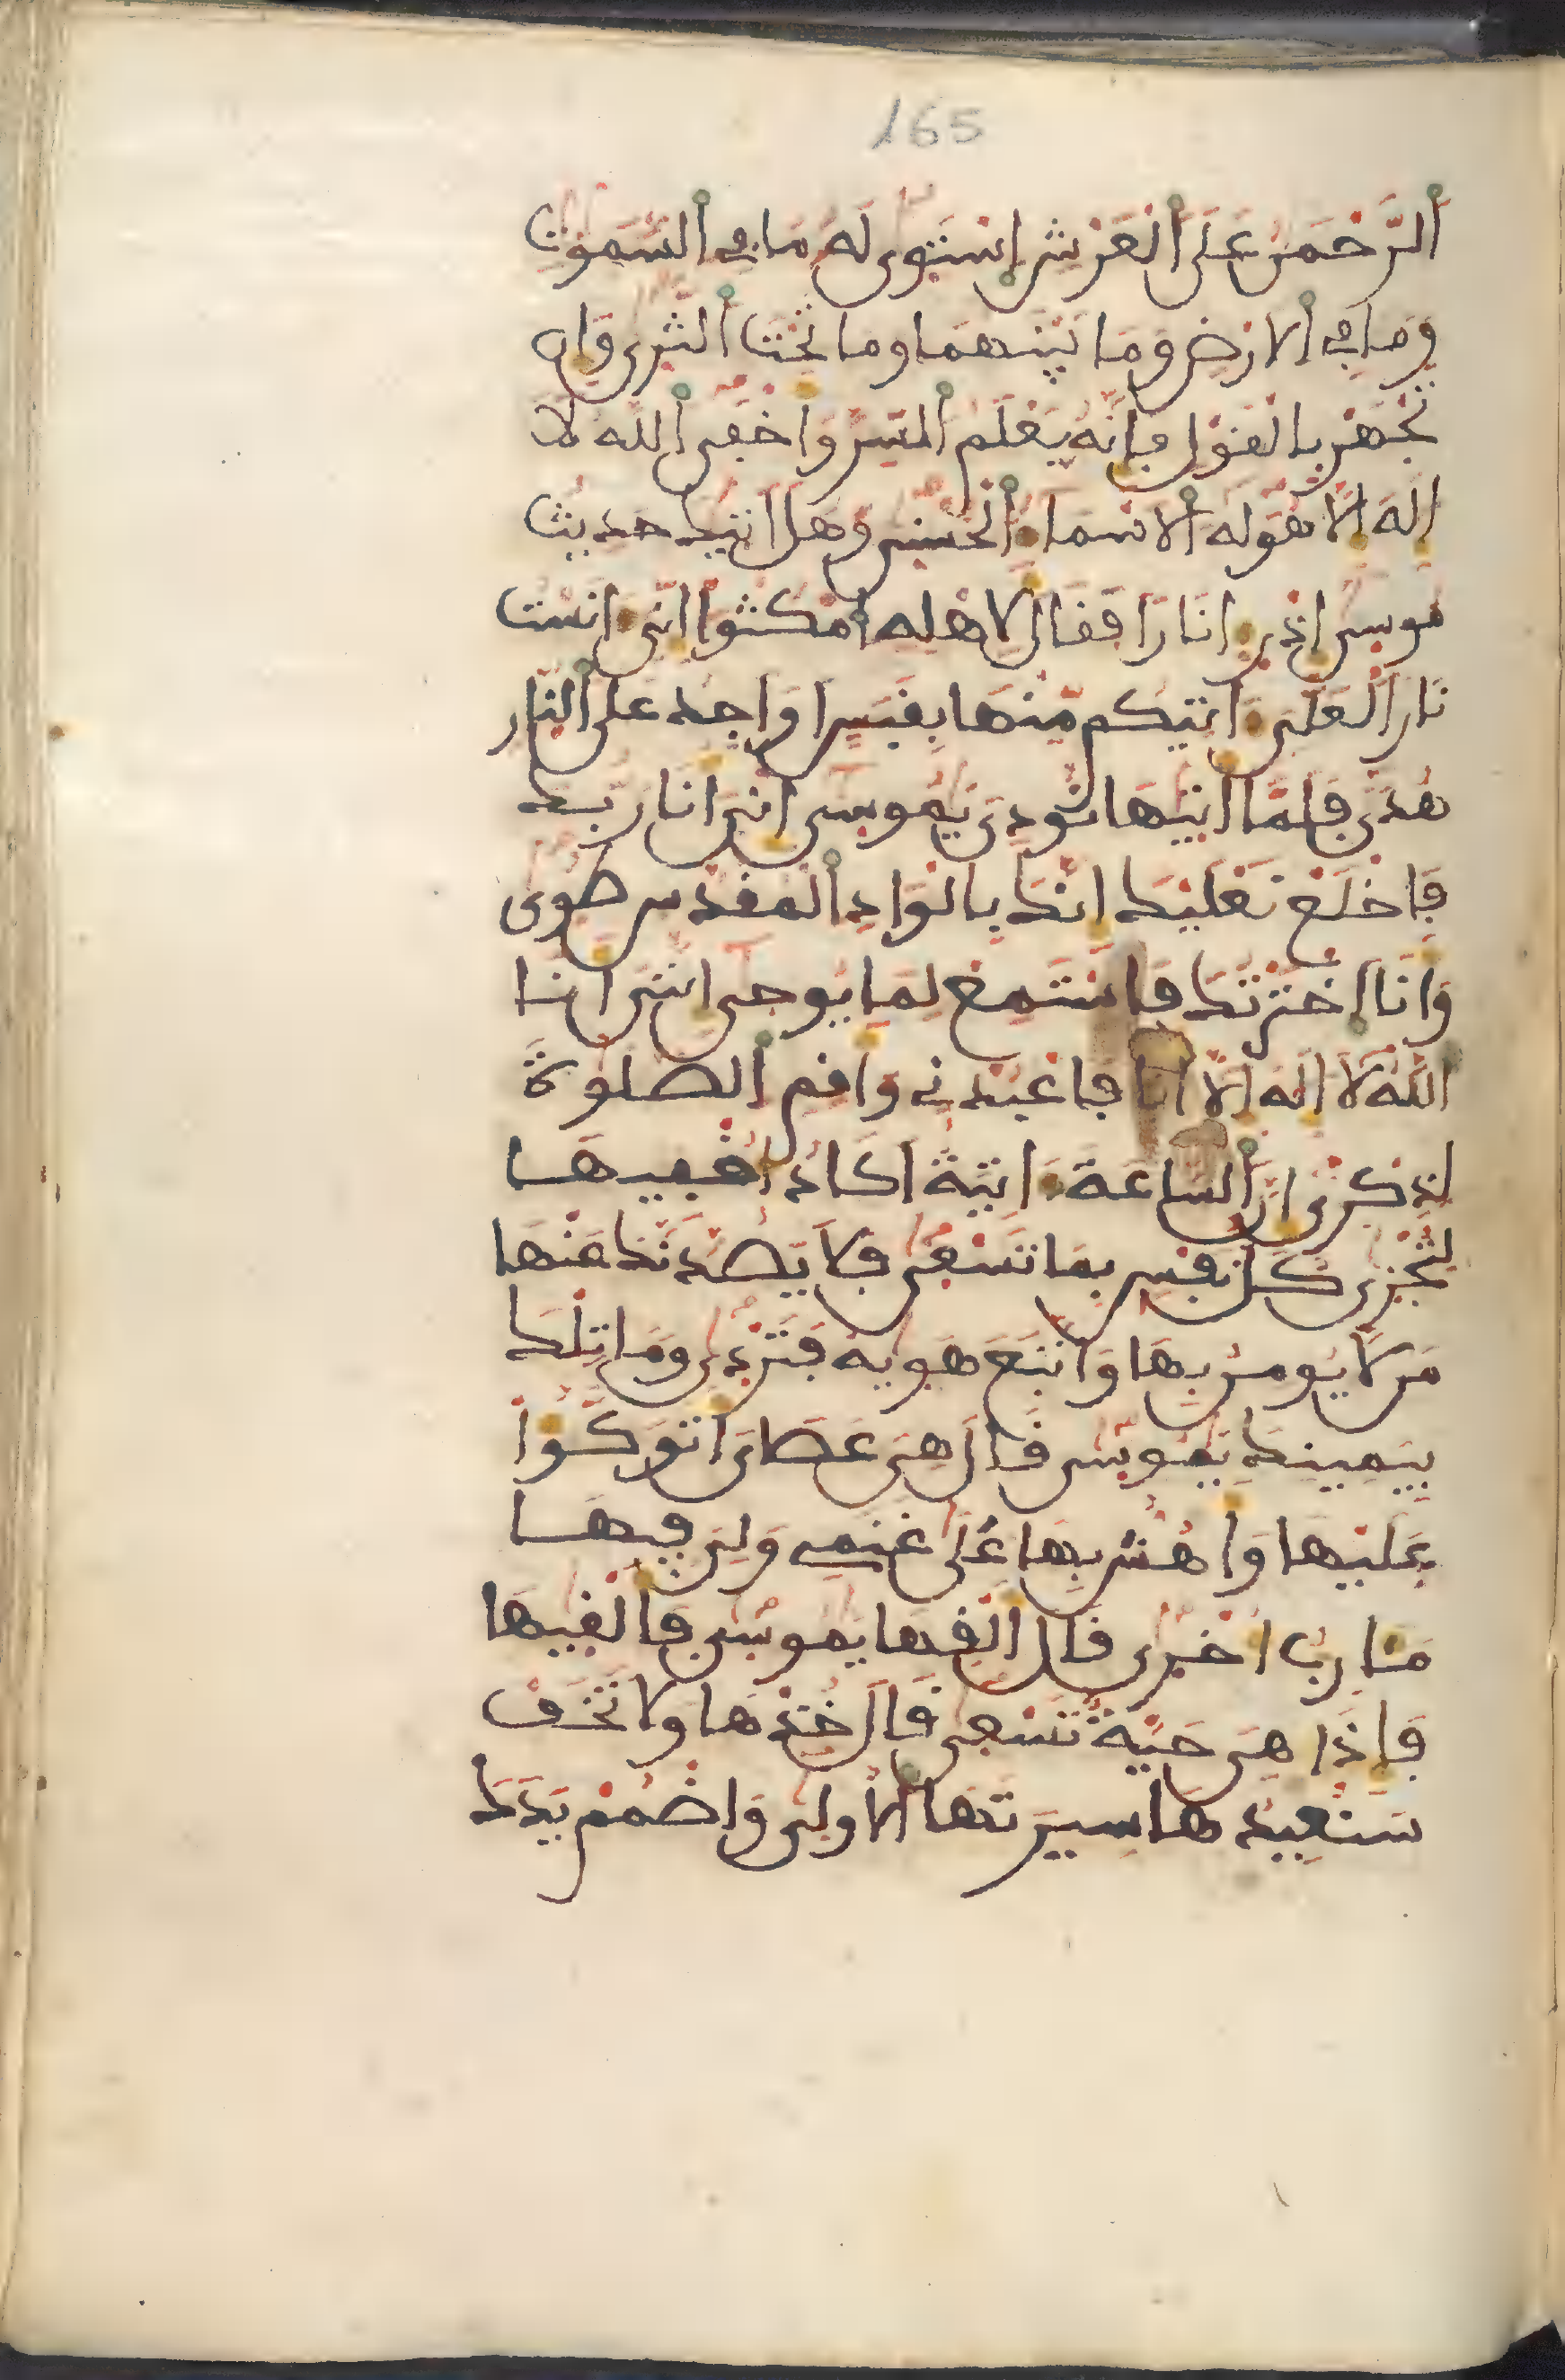 165
الرَّحْمَنُ عَلَى الْعَرْشِ اسْتَوى لَهُ مَا في السَّمَوتِ
وَمَا في الارْضِ وَمَا بَيْنَهُمَا وما تَحْتَ الثَّرى وَإن
تَجْهَرْ بِالْقَوْلِ فَإنَّهُ يَعْلَمُ السِّرَّ وَأخْفَى اللَّهُ لَا
إلَهَ إلَّا هُوَ لَهُ الاسْمَاءُ الْحُسْنى وَهَلَ اتيكَ حَدِيثُ
مُوسى إذْ رءا نَارًا فَقَالَ لِاهْلِهِ امْكُثُوا إنِّى ءانَسْتُ
نَارًا لَّعَلِّى ءاتِيكُم مِّنْهَا بِقَبَسٍ اوَ اجِدُ عَلَى النَّارِ
هُدًى فَلَمَّا أتيهَا نُودِىَ يَمُوسى إنِّىَ أنَا رَبُّكَ
فَاخْلَعْ نَعْلَيْكَ إنَّكَ بِالْوَادِ الْمُقَدَّسِ طُوى
وَأنَا اخْتَرْتُكَ فَاسْتَمِعْ لِمَا يُوحى إنَّنِىَ أنَا
اللَّهُ لَا إلَهَ إلَّا أنَا فَاعْبُدْنِي وَأقِمِ الصَّلَوةَ
لِذِكْرِىَ إنَّ السَّاعَةَ ءاتِيَةٌ اكَادُ أخْفِيهَا
لِتُجْزى كُلُّ نَفْسٍ بِمَا تَسْعى فَلَا يَصُدَّنَّكَ عَنْهَا
مَن لَّا يُومِنُ بِهَا وَاتَّبَعَ هَويهُ فَتَرْدى وَمَا تِلْكَ
بِيَمِينِكَ يَمُوسى قَالَ هِىَ عَصَاىَ أتَوَكَّؤُا
عَلَيْهَا وَأهُشُّ بِهَا عَلَى غَنَمِي وَلِىَ فِيهَا
مَئَارِبُ أخْرى قَالَ ألْقِهَا يَمُوسى فَألْقيهَا
فَإذَا هِىَ حَيَّةٌ تَسْعى قَالَ خُذْهَا وَلَا تَخَفْ
سَنُعِيدُهَا سِيرَتَهَا الاولى وَاضْمُمْ يَدَكَ